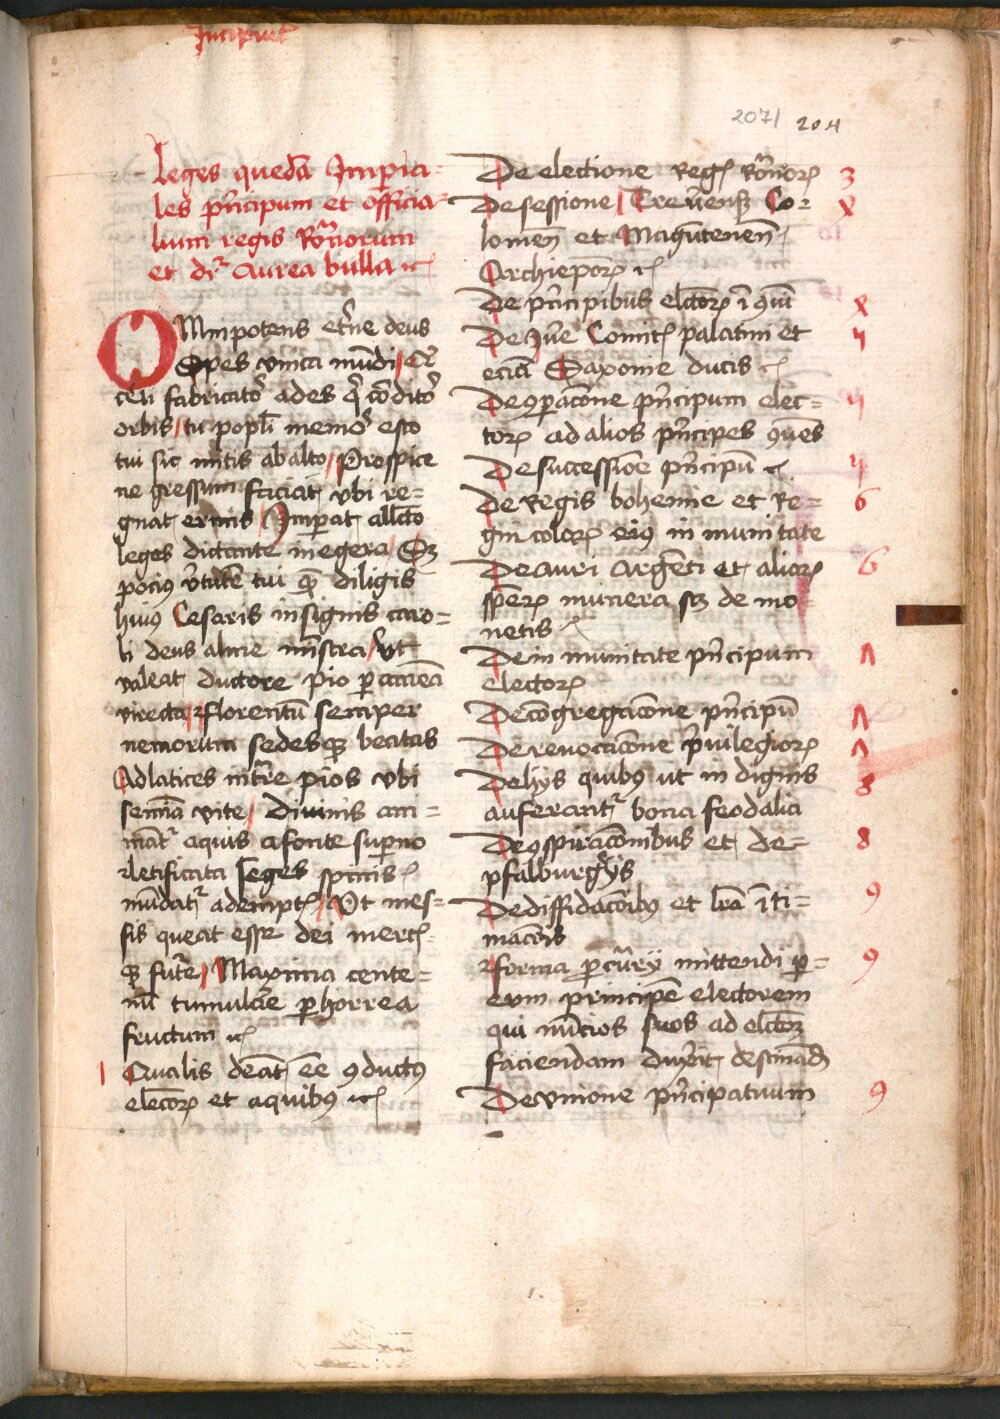 Incipiunt
207/ 204
Leges quedā Imperia-
les pncipum et officia-
lium regis Romorum
et dr Aurea bulla rc
OMnipotens eterne deus
Spes unica mūdi / Qr
celi fabricator ades q conditor
orbis / tu popli memor esto
tui sic mitis ab alto / Prospice
ne gressum faciat ubi re=
gnat erinis / Imperat allecto
leges dictante megera / Sz
pocius vtute tui quem diligis
huius Cesaris insignis caro=
li deus alme mistra / Ut
valeat ductore pio per amena
virecta / florentū semper
nemorum sedesque beatas
Ad latices intre pios ubi
semina vite / Divinis an=
mat aquis a fonte superno
letificata seges spinis
mūdatr ademptis / Ut mes=
sis queat esse dei merc
que future / Maxima cente=
num cumulare per horrea
fructum rc
1 Qualis debeat ee conductus
elector et a quibus rc
De electione Regis Romor 3
De sessione / Treverens Co= X
lonien et Magutenen
Archiepor rc
De pncipibus elector in comuni X
De Jure Comitis palatini et 4
eciā Saxonie ducis rc
De comparacone pncipum elec= 4
tor ad alios pncipes comunes
De successione pncipū rc 4
De Regis bohemie et Re= 6
gni color eius in munitate
De Auri Argenti et alior 6
specier minera sz de mo
netis rc
De in munitate pncipum Λ
elector
De congregacione pncipū Λ
De revocacione privilegior Λ
De hys quibus ut in dignis 8
auferantr bona feodalia
De conspiraconibus et de= 8
pfalburgerys
De diffidaconibus et lra inti= 9
macionis
forma procurii mittendi per= 9
eum principē electorem
qui nūcios suos ad eleccōz
faciendam duxerit destinand
De unione pncipatuum 9